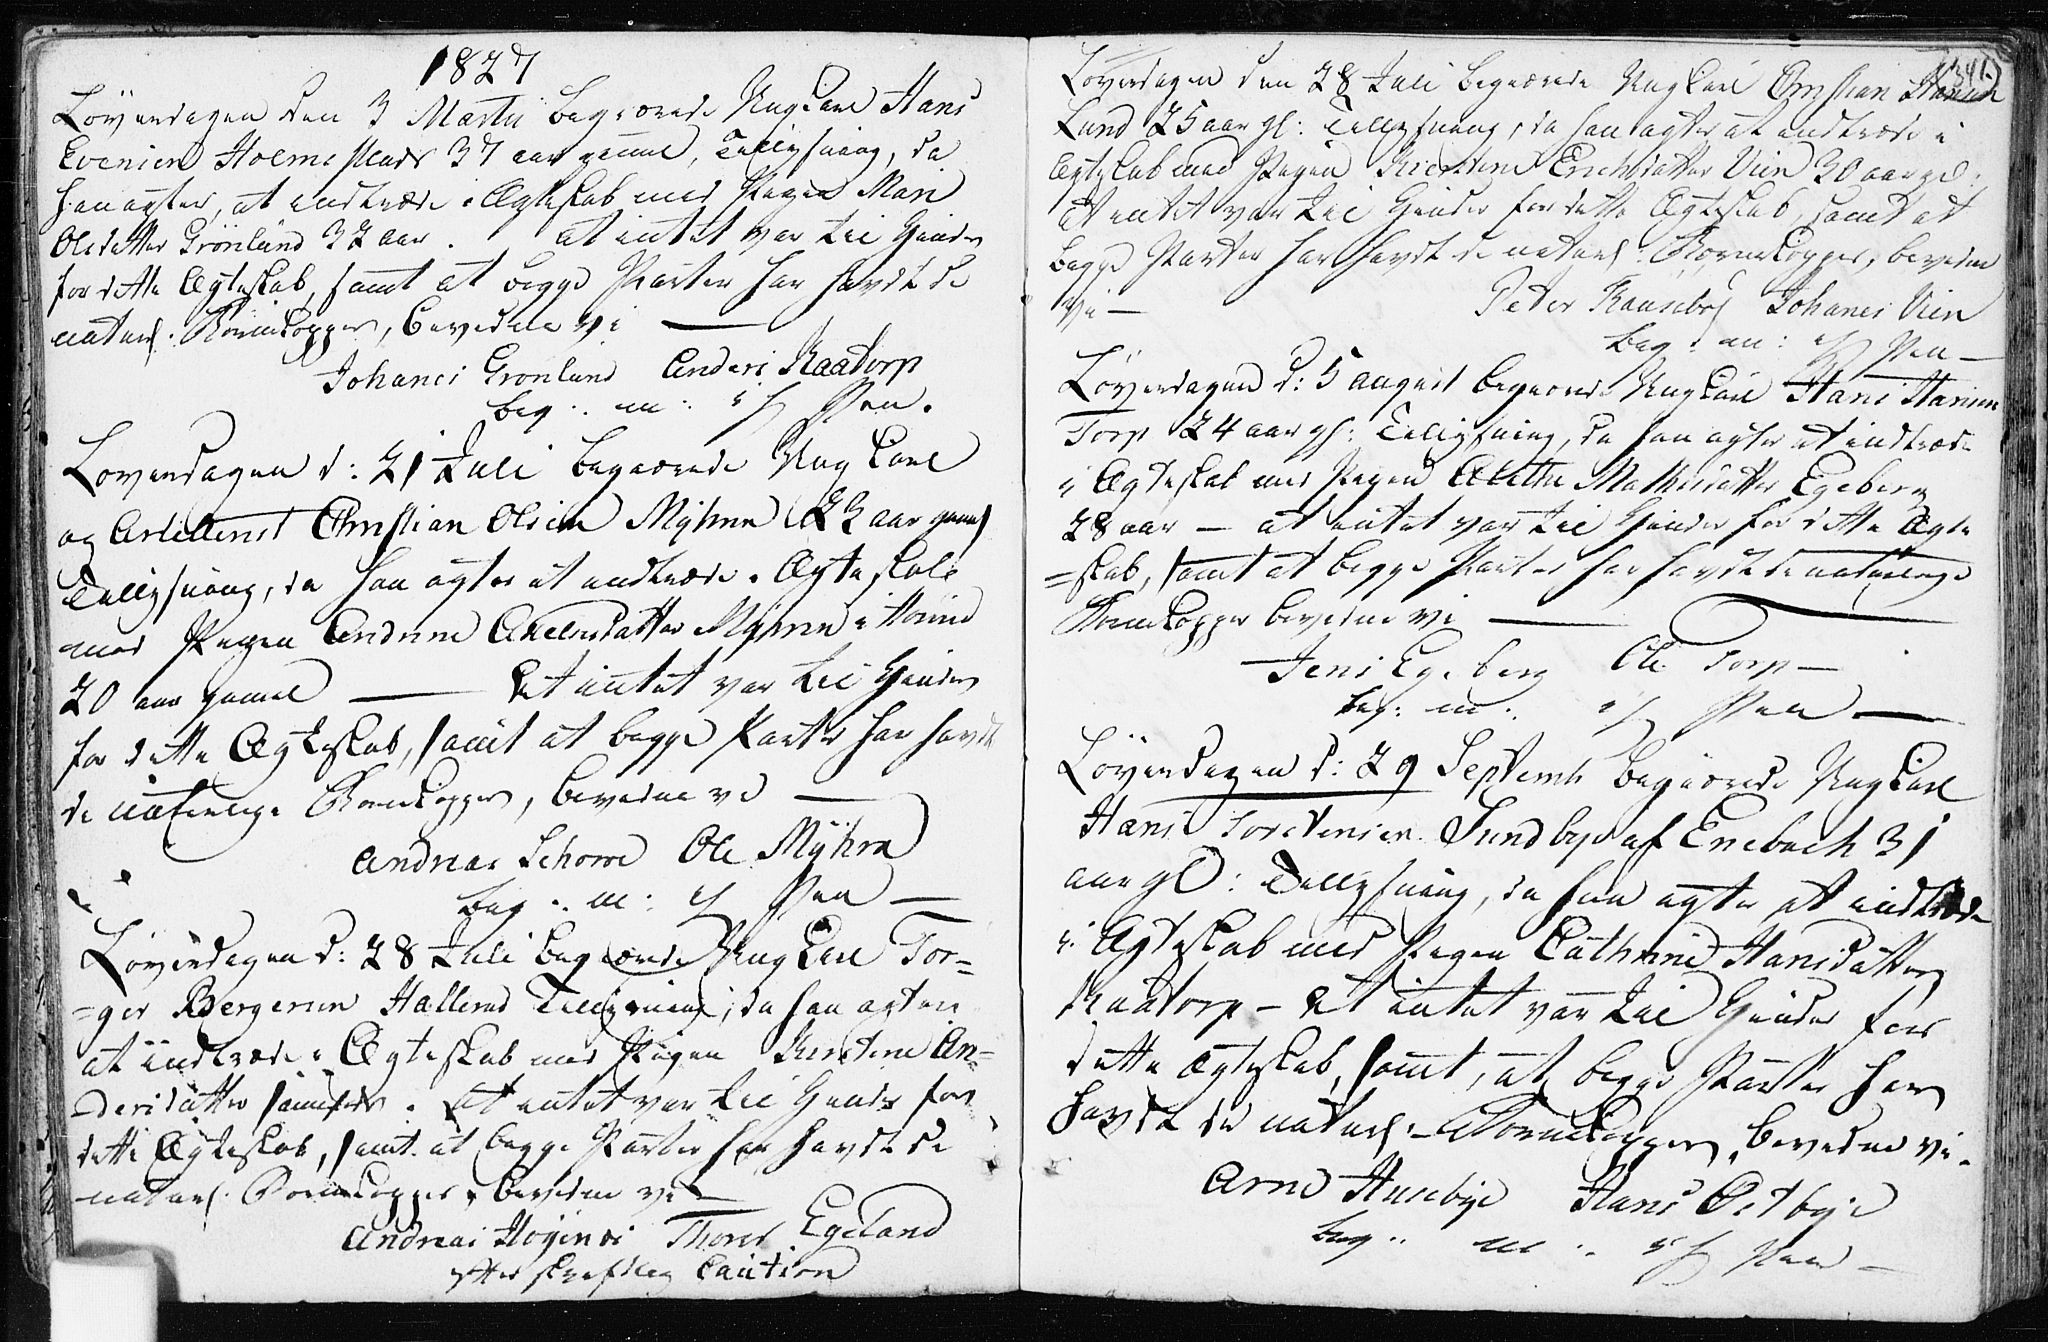 1827
Løverdagen den 3 Martii begiærede Ungkarl Hans
Evensen Holmestrand 37 aar gamel, Tillysning, da
han agter, at indtræde i Ægteskab med Pigen Mari
Olsdatter Grönlund 32 aar. at intet var Lec Hinder
for dette Ægteskab, samt at begge Parter har havdt de
naturl: Børnekopper, bevidne vi —
Johanes Gronlund Anders Raatorp
beg: m: i f Pen.
Loverdagen d: 21 Juli begærede Ungkarl
og Artellerist Christian Olsen Myhren 22 aar gamel
Tillysning, da han agter at indtræde i Ægteskab
med Pigen Andrine Axelsdatter Myhren i
20 aar gamel — At intet var Lec Hinder
for dette Ægteskab, samt at begge Parter har havdt
de naturlige Børnekopper, bevidne vi —
Andreas Schowe Ole Myhra
beg: m: i f Pen —
Løverdagen d: 28 Juli begiærede Ungkarl Tor-
-ger Bergersen Hallerud Tillysning, da han agter
at indtræde i Ægteskab med Pigen Kirstine An-
-dersdatter samesteds. At intet var Lec Hinder for
dette Ægteskab, samt at begge Parter har havdt de
naturl: Børnekopper, bevidne vi —
Andreas Hoyenes Thorer Egeland
efter skriftlig Caution
341.
Løverdagen den 28 Juli begiærede Ungkarl Christian Hansen
Lund 25 aar gl: Tillysning, da han agter at indtræde i
Ægteskab med Pigen Kirstine Erichsdatter Vien 30 aar gl:
At intet var Lec Hinder for dette Ægteskab, samt at
begge Parter har havdt de naturl: Børnekopper, bevidne
vi — Peter Johanes Vien
beg: m: i f Pen —
Løverdagen d: 5 August begiærede Ungkarl Hans Hansen
Torp 24 aar gl: Tillysning, da han agter at indtræde
i Ægteskab med Pigen Mathisdatter Egeberg
28 aar — at intet var Lec Hinder for dette Ægte
=skab, samt at begge Parter har havdt de naturlige
Børnekopper bevidne vi —
Jens Egeberg Ole Torp —
beg: m: i f Pen —
Løverdagen d: 29 Septemb begiærede Ungkarl
Hans Torstensen Sundbye af Enebach 31
aar gl: Tillysning, da han agter at indtræde
i Ægteskab med Pigen Cathrine Hansdatter
Raatorp — At intet var Lec Hinder for
dette Ægteskab, samt, at begge Parter har
havdt de naturl: Børnekopper, bevidne vi.
Arne Husebye Hans Østbye
beg: m: i f Pen —